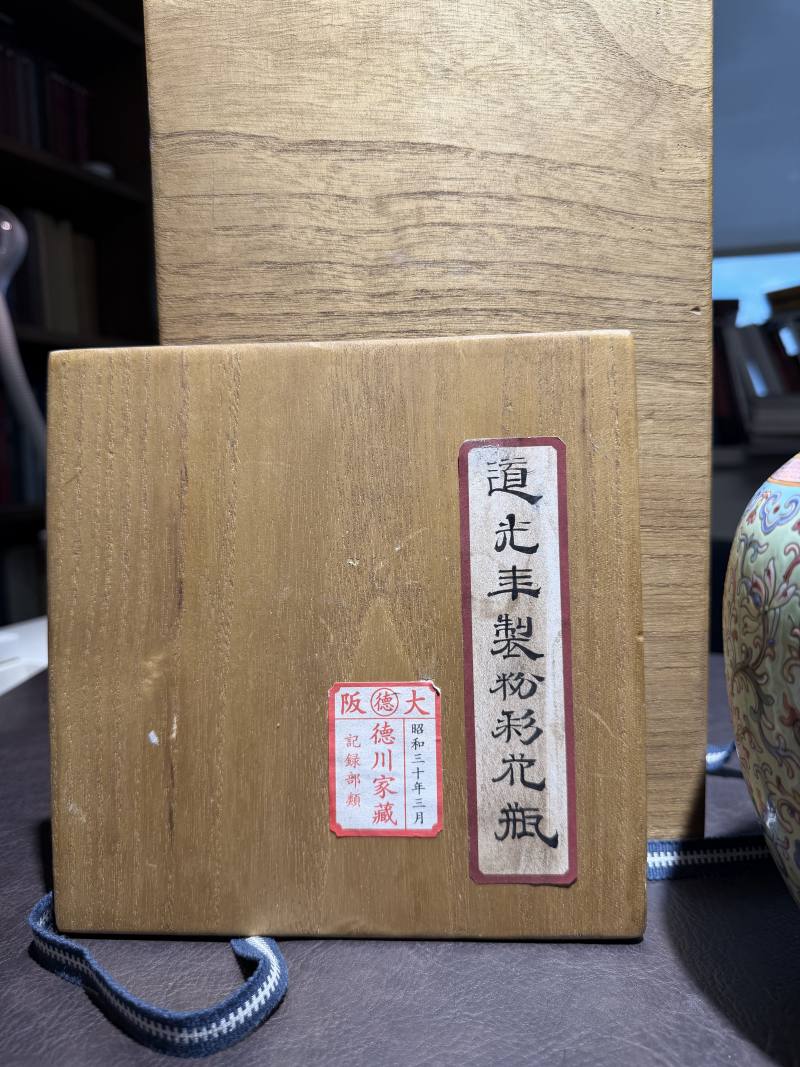 道光年製粉彩花瓶
大德阪
昭和三十年三月
徳川家藏
記録部類